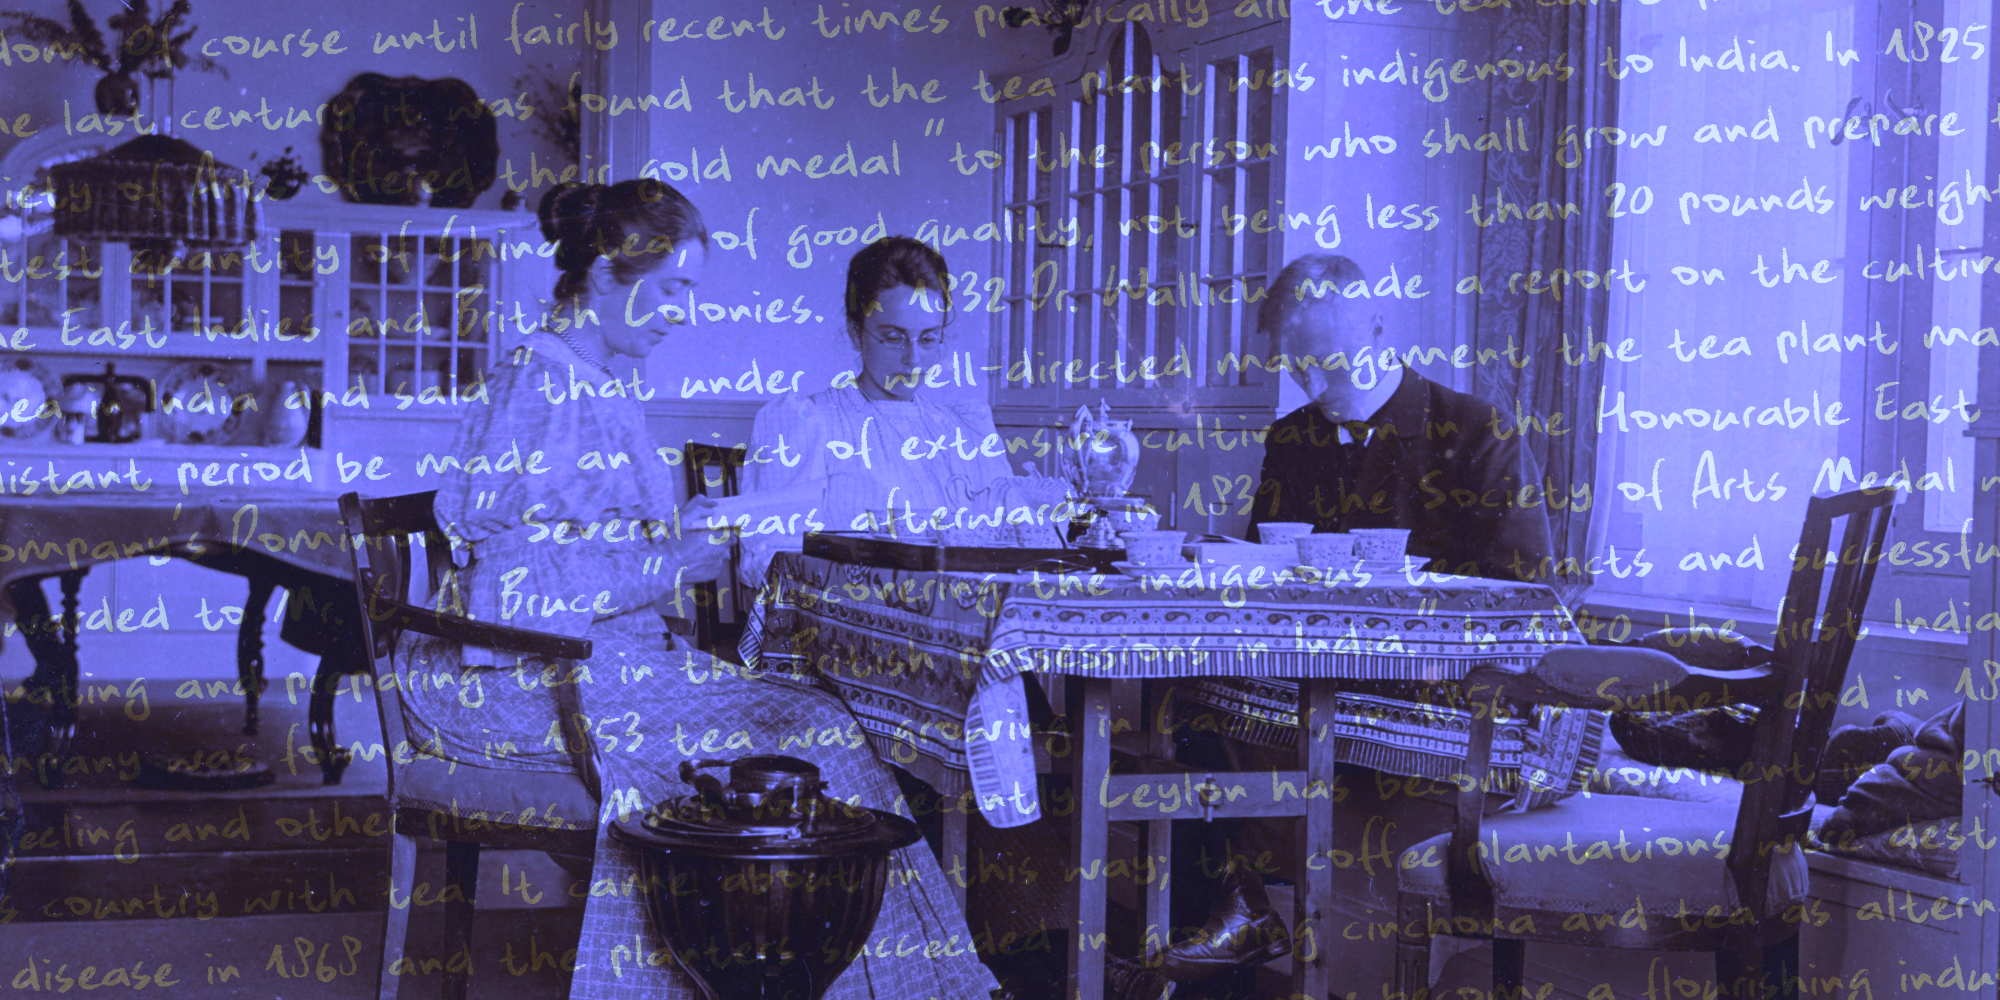 dom. Of course until fairly recent times practically all the tea
he last century it was found that the tea plant was indigenous to India. In 1825
iety of Arts offered their gold medal "to the person who shall grow and prepare t
test quantity of China tea, of good quality, not being less than 20 pounds weight
he East Indies and British Colonies. In 1832 Dr. Wallich made a report on the cultiva
tea in India and said "that under a well-directed management the tea plant ma
distant period be made an object of extensive cultivation in the Honourable East
ompany's Dominions." Several years afterwards in 1839 the Society of Arts Medal
warded to Mr. C. A. Bruce "for discovering the indigenous tea tracts and successfu
vating and preparing tea in the British possessions in India." In 1840 the first India
mpany was formed, in 1853 tea was growing in Cachar, in 1856 in Sylhet and in 18
eeling and other places. Much more recently Ceylon has become prominent in supp
s country with tea. It came about in this way; the coffee plantations were dest
disease in 1868 and the planters succeeded in growing cinchona and tea as altern
become a flourishing indu